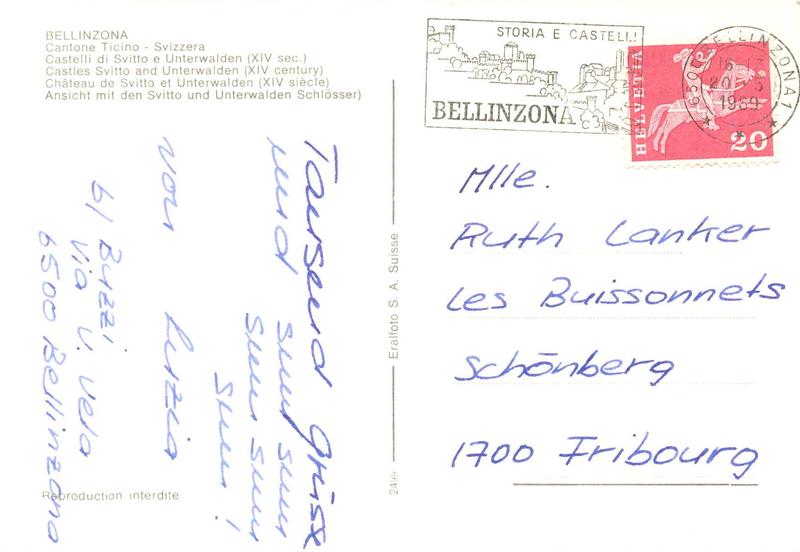 BELLINZONA
Cantone Ticino - Svizzera
Castelli di Svitto e Unterwalden (XIV sec.)
Castles Svitto and Unterwalden (XIV century)
Château de Svitto et Unterwalden (XIV siècle)
Ansicht mit den Svitto und Unterwalden Schlösser)
STORIA E CASTELLI
BELLINZONA
6500 BELLINZONA 1
HELVETIA
20
Mlle.
Ruth Lanker
Les Buissonnets
Schönberg
1700 Fribourg
Tausend Grüsse
und
sum sum
sum sum
sum!
von Luzia
b/ Buzzi
Via V. Vela
6500 Bellinzona
Eralfoto S. A. Suisse
2499
Reproduction interdite